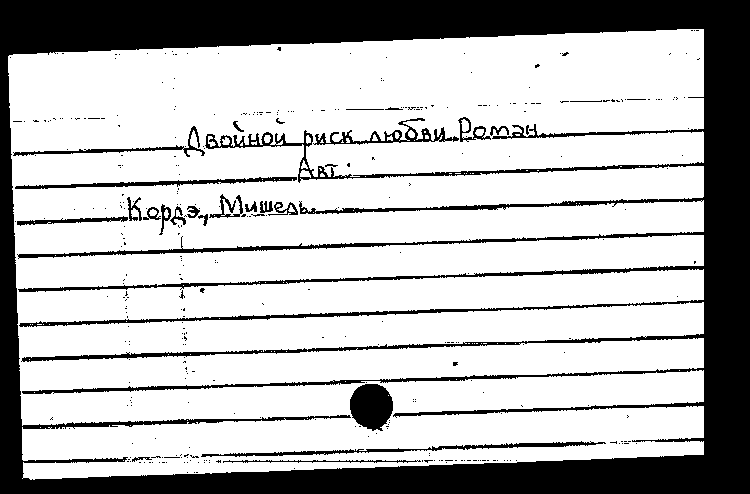 Двойной риск любви. Роман.
Авт:
Кордэ, Мишель.